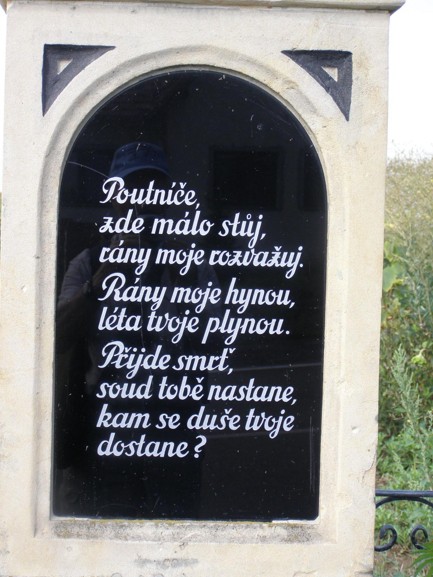 Poutníče,
zde málo stůj,
rány moje rozvažuj.
Rány moje hynou,
léta tvoje plynou.
Přijde smrť,
soud tobě nastane,
kam se duše tvoje
dostane?